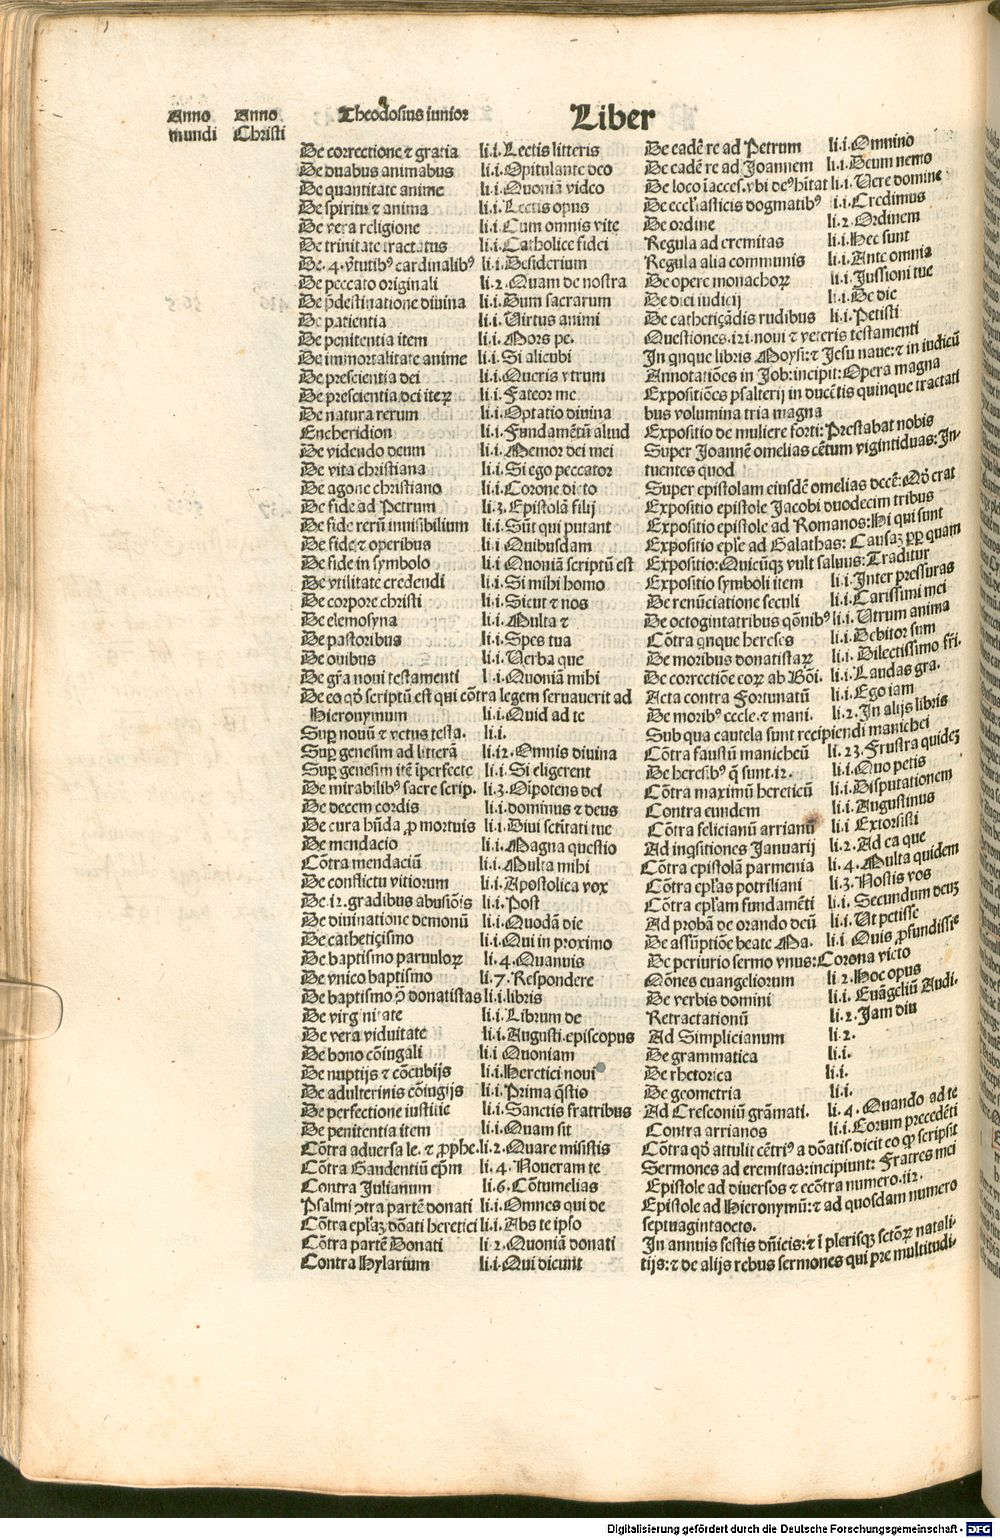 Anno Anno Theodosius iunior Liber
mundi Christi
De correctione ⁊ gratia li.i. Lectis litteris
De duabus animabus li.i. Opitulante deo
De quantitate anime li.i. Quoniā video
De spiritu ⁊ anima li.i. Lectis opus
De vera religione li.i. Cum omnis vite
De trinitate tractatus li.i. Catholice fidei
De .4. v̄tutibꝰ cardinalibꝰ li.i. Desiderium
De peccato originali li.2. Quam de nostra
De p̄destinatione diuina li.i. Dum sacrarum
De patientia li.i. Virtus animi
De penitentia item li.i. Mors pe.
De immortalitate anime li.i. Si alicubi
De prescientia dei li.i. Queris vtrum
De prescientia dei iteꝝ li.i. Fateor me
De natura rerum li.i. Optatio diuina
Encheridion li.i. Fundamētū aliud
De videndo deum li.i. Memor dei mei
De vita christiana li.i. Si ego peccator
De agone christiano li.i. Corone dicto
De fide ad Petrum li.3. Epistolā filij
De fide rerū inuisibilium li.i. Sūt qui putant
De fide ⁊ operibus li.i Quibusdam
De fide in symbolo li.i Quoniā scriptū est
De vtilitate credendi li.i. Si mihi homo
De corpore christi li.i. Sicut ⁊ nos
De elemosyna li.i. Multa ⁊
De pastoribus li.i. Spes tua
De ouibus li.i. Verba que
De gr̄a noui testamenti li.i. Quoniā mihi
De eo qd̓ scriptū est qui cōtra legem seruauerit ad
Hieronymum li.i. Quid ad te
Suꝑ nouū ⁊ vetus testa. li.i.
Suꝑ genesim ad litterā li.12. Omnis diuina
Suꝑ genesim itē īperfecte li.i. Si eligerent
De mirabilibꝰ sacre scrip. li.3. Oīpotens dei
De decem cordis li.i. dominus ⁊ deus
De cura hn̄da ꝓ mortuis li.i. Diui sctītati tue
De mendacio li.i. Magna questio
Cōtra mendaciū li.i. Multa mihi
De conflictu vitiorum li.i. Apostolica vox
De .12. gradibus abusiōis li.i. Post
De diuinatione demonū li.i. Quodā die
De cathetiçismo li.i. Qui in proximo
De baptismo paruuloꝝ li.4. Quanuis
De vnico baptismo li.7. Respondere
De baptismo ꝯ̄ donatistas li.i. libris
De virginitate li.i. Librum de
De vera viduitate li.i. Augusti. episcopus
De bono cōiugali li.i Quoniam
De nuptijs ⁊ cōcubijs li.i. Heretici noui
De adulterinis cōiugijs li.i. Prima q̄stio
De perfectione iustitie li.i. Sanctis fratribus
De penitentia item li.i. Quam sit
Cōtra aduersa le. ⁊ ꝓphe. li.2. Quare misistis
Cōtra Gaudentiū ep̄m li.4. Noueram te
Contra Julianum li.6. Cōtumelias
Psalmi ꝯtra partē donati li.i. Omnes qui de
Cōtra ep̄laꝫ dōati heretici li.i. Abs te ipso
Cōtra partē Donati li.2. Quoniā donati
Contra Hylarium li.i. Qui dicunt
De eadē re ad Petrum li.i. Omnino
De eadē re ad Joannem li.i. Deum nemo
De loco īacces. vbi deꝰ hītat li.i. Vere domine
De eccl̓iasticis dogmatibꝰ li.i. Credimus
De ordine li.2. Ordinem
Regula ad eremitas li.i. Hec sunt
Regula alia communis li.i. Ante omnia
De opere monachoꝝ li.i. Jussioni tue
De diei iudicij li.i. De die
De cathetiçādis rudibus li.i. Petisti
Questiones .121. noui ⁊ veteris testamenti
In qnque libris Moysi: ⁊ Jesu naue: ⁊ in iudicū
Annotatiōes in Job: incipit: Opera magna
Expositiōes psalterij in ducētis quinque tractati
bus volumina tria magna
Expositio de muliere forti: Prestabat nobis
Super Joannē omelias cētum vigintiduas: In-
tuentes quod
Super epistolam eiusdē omelias decē: Qd̓ erat
Expositio epistole Jacobi duodecim tribus
Expositio epistole ad Romanos: Hi qui sunt
Expositio ep̄le ad Galathas: Causaꝫ ꝓꝑ quam
Expositio: Quicūqꝫ vult saluus: Traditur
Expositio symboli item li.i. Inter pressuras
De renūciatione seculi li.i. Carissimi mei
De octogintatribus qōnibꝰ li.i. Vtrum anima
Cōtra qnque hereses li.i. Debitor sum
De moribus donatistaꝝ li.i. Dilectissimo fri.
De correctiōe eoꝝ ab Bōi. li.i. Laudas gra.
Acta contra Fortunatū li.i. Ego iam
De moribꝰ eccle. ⁊ mani. li.2. In alijs libris
Sub qua cautela sunt recipiendi manichei
Cōtra faustū manicheū li.23. Frustra quideꝫ
De heresibꝰ q̄ sunt .12. li.i. Quo petis
Cōtra maximū hereticū li.i. Disputationem
Contra eundem li.i. Augustinus
Cōtra felicianū arrianū li.i Extorsisti
Ad inqsitiones Januarij li.2. Ad ea que
Cōtra epistolā parmenia li.4. Multa quidem
Cōtra ep̄las potriliani li.3. Nostis vos
Cōtra ep̄lam fundamēti li.i. Secundum deuꝫ
Ad probā de orando deū li.i. Ut petisse
De assūptiōe beate Ma. li.i. Quis ꝓfundisse
De periurio sermo vnus: Corona victo
Oēnes euangeliorum li.2. Hoc opus
De verbis domini li.i. Euāgeliū Audi.
Retractationū li.2. Jam diu
Ad Simplicianum li.2.
De grammatica li.i.
De rhetorica li.i.
De geometria li.i.
Ad Cresconiū grāmati. li.4. Quando ad te
Contra arrianos li.i. Eorum precedēti
Cōtra qd̓ attulit cētriꝰ a dōatis. dicit eo ꝙ scripsit
Sermones ad eremitas: incipiunt: Fratres mei
Epistole ad diuersos ⁊ ecōtra numero .112.
Epistole ad Hieronymū: ⁊ ad quosdam numero
septuagintaocto.
In annuis festis dn̄icis: ⁊ ī plerisqꝫ sctōꝝ natali-
tijs: ⁊ de alijs rebus sermones qui pre multitudi-
Digitalisierung gefördert durch die Deutsche Forschungsgemeinschaft - DFG